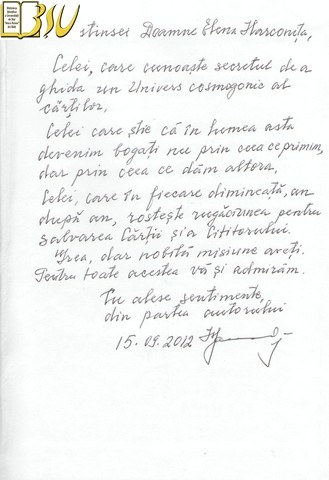 BȘU
stinsei Doamne Elena Harconița,
Celei, care cunoaște secretul de a
ghida un Univers cosmogonic al
cărților,
Celei care știe că în lumea asta
devenim bogați nu prin ceea ce primim,
dar prin ceea ce dăm altora.
Celei, care în fiecare dimineață, an
după an, rostește rugăciunea pentru
salvarea Cărții și a Cititorului.
Grea, dar nobilă misiune aveți.
Pentru toate acestea vă și admirăm.
Cu alese sentimente,
din partea autorului
15.09.2012